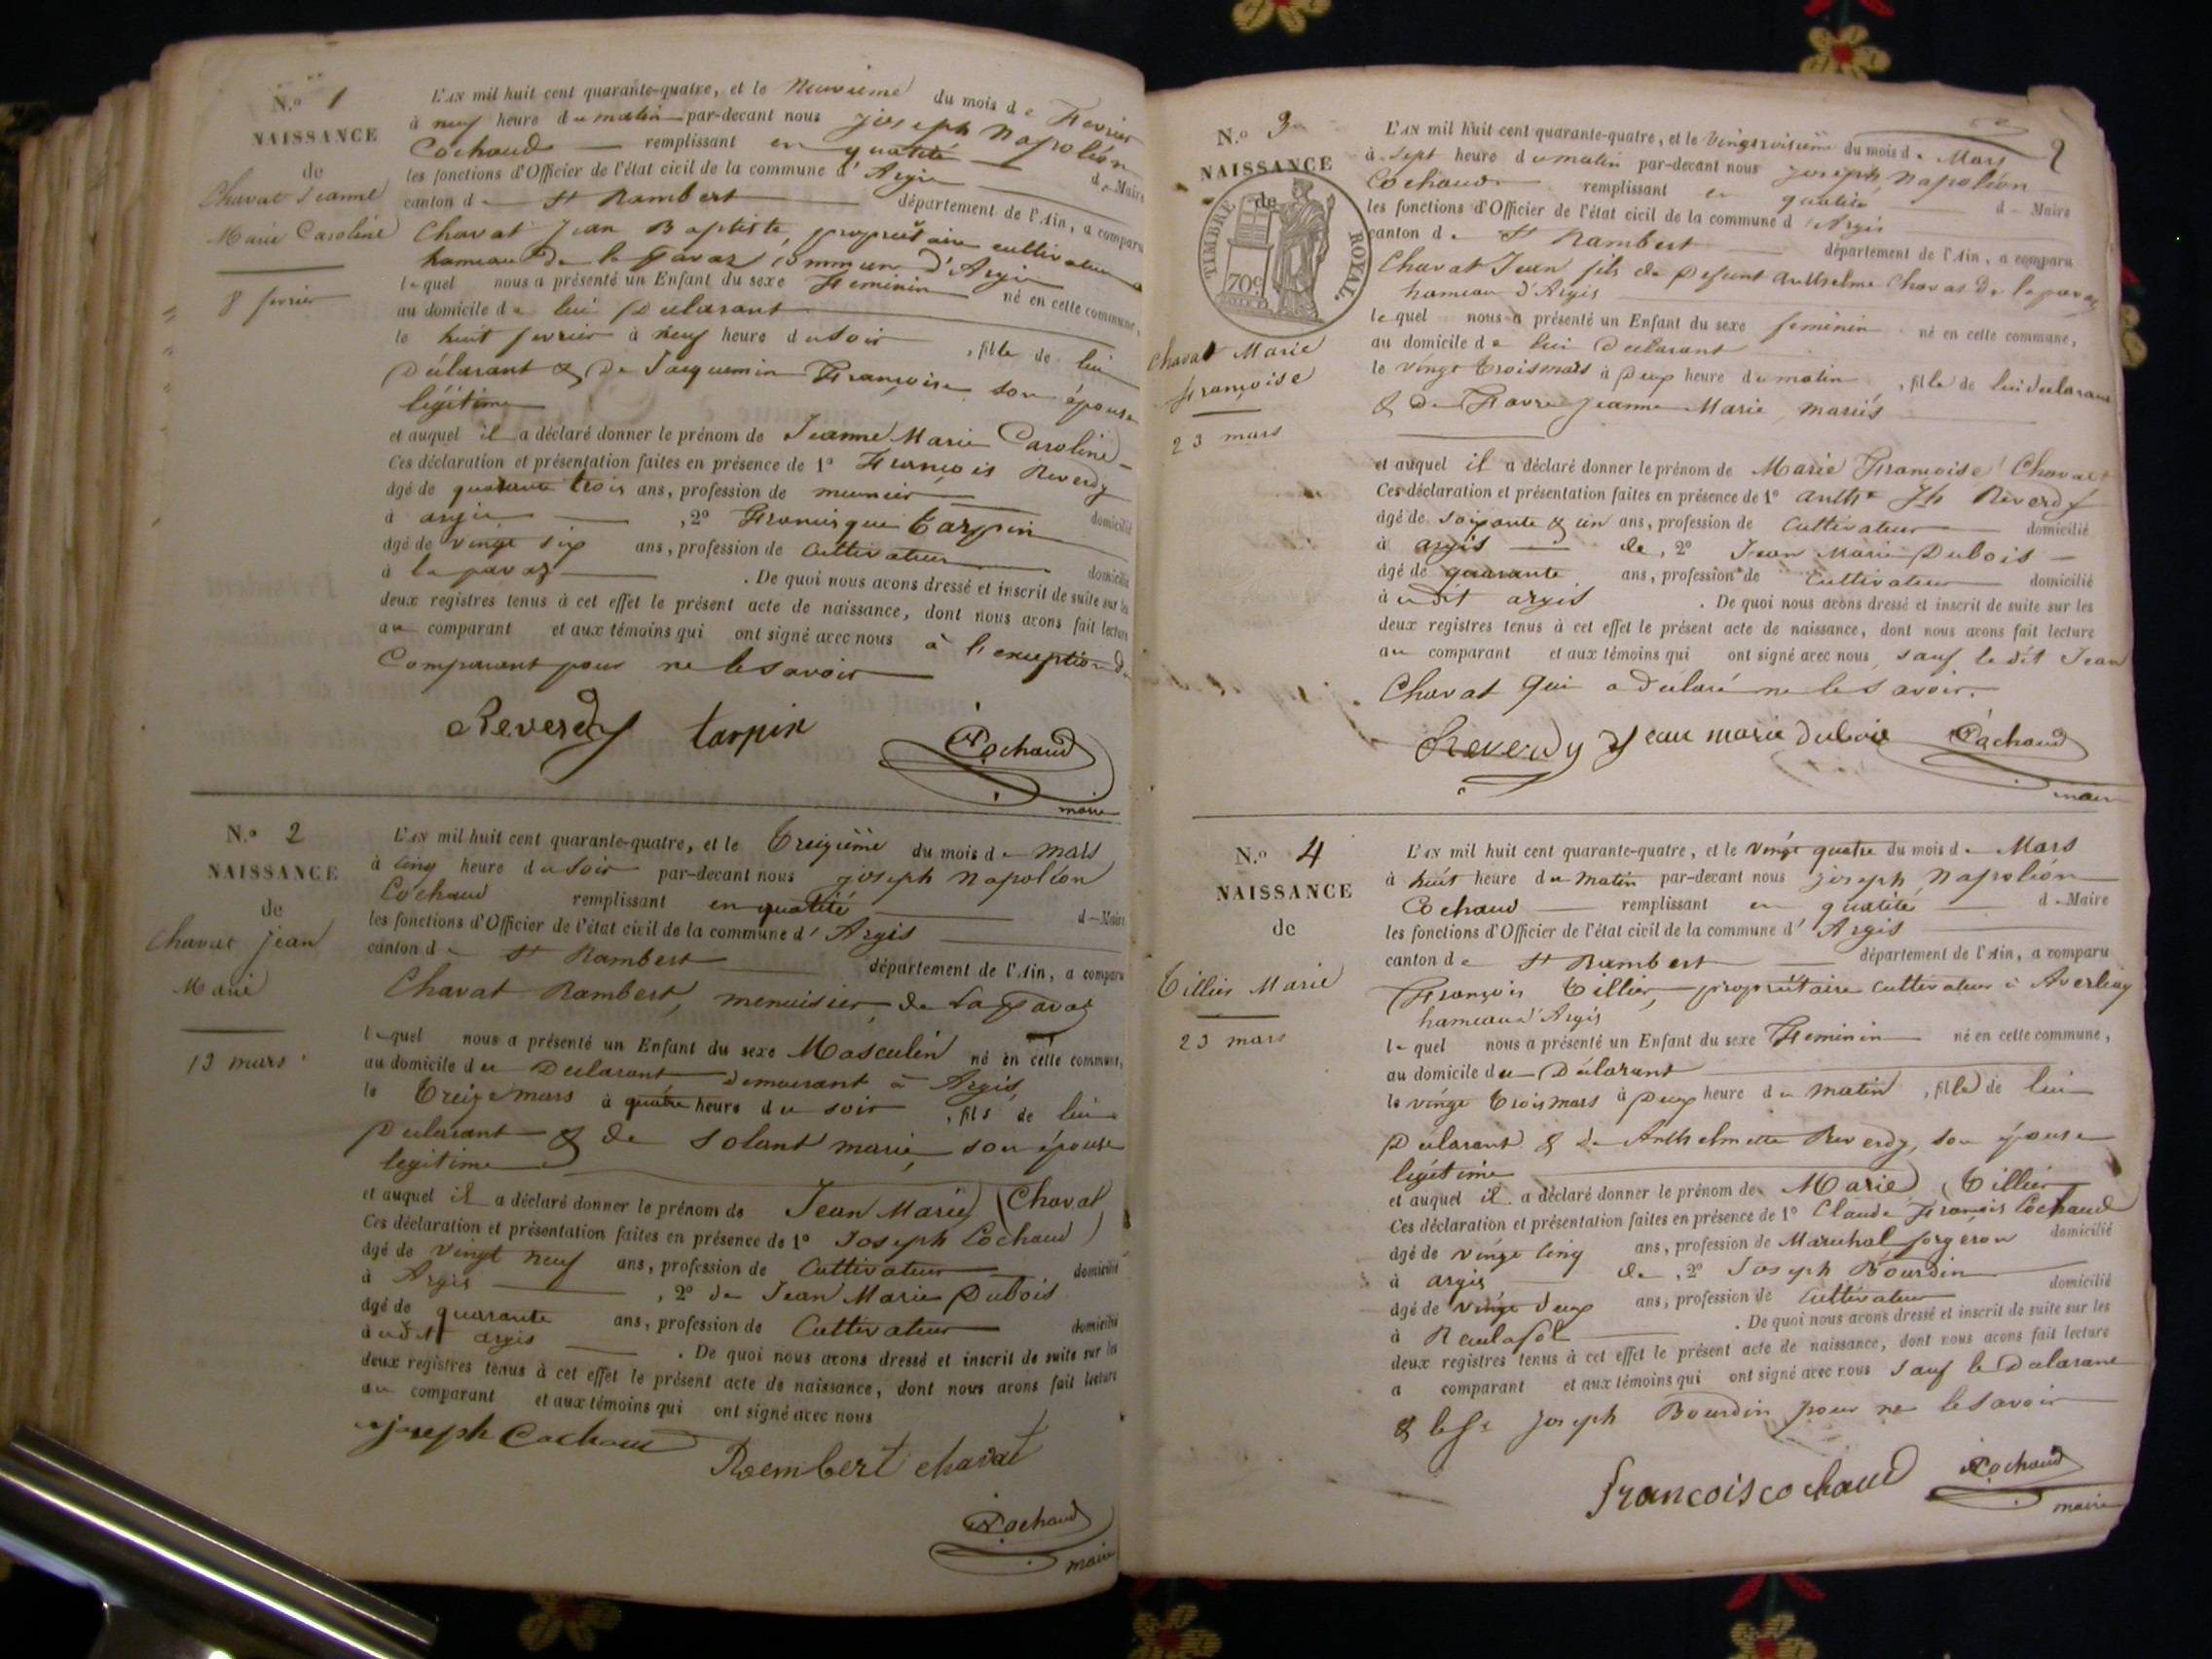 N.o 1
NAISSANCE
de
Chavat Jeanne
Marie Caroline
8 fevrier
L'AN mil huit cent quarante-quatre, et le Neuvieme du mois de Fevrier
à neuf heure du matin par-devant nous joseph Napoléon
Cochaud remplissant en qualité de Maire
les fonctions d'Officier de l'état civil de la commune d'Argis
canton de St Rambert département de l'Ain, a comparu
Chavat Jean Baptiste, propriétaire cultivateur
hameau de la pavaz commun d'Argis
lequel nous a présenté un Enfant du sexe Feminin né en cette commune,
au domicile de lui Déclarant
le huit fevrier à neuf heure du soir, fille de lui
Déclarant & de Jacquemin Françoise son épouse
légitime
et auquel il a déclaré donner le prénom de Jeanne Marie Caroline
Ces déclaration et présentation faites en présence de 1o François Reverdy
âgé de quarante trois ans, profession de meunier domicilié
à argis, 2o Francisque Tarpin
âgé de vingt six ans, profession de cultivateur domicilié
à la pavaz. De quoi nous avons dressé et inscrit de suite sur les
deux registres tenus à cet effet le présent acte de naissance, dont nous avons fait lecture
au comparant et aux témoins qui ont signé avec nous à l'exception du
Comparant pour ne le savoir
Reverdy tarpin Cochaud
maire
N.o 2
NAISSANCE
de
Chavat jean
Marie
13 mars
L'AN mil huit cent quarante-quatre, et le Treizième du mois de mars
à cinq heure du soir par-devant nous joseph napoléon
Cochaud remplissant en qualité de Maire
les fonctions d'Officier de l'état civil de la commune d'Argis
canton de St Rambert département de l'Ain, a comparu
Chavat Rambert, menuisier, de La pavaz
lequel nous a présenté un Enfant du sexe Masculin né en cette commune,
au domicile du Déclarant demeurant à Argis,
le Treize mars à quatre heure du soir, fils de lui
Déclarant & de Solant marie, son épouse
legitime
et auquel il a déclaré donner le prénom de Jean Marie (Chavat)
Ces déclaration et présentation faites en présence de 1o Joseph Cochaud
âgé de vingt neuf ans, profession de Cultivateur domicilié
à Argis, 2o de Jean Marie Dubois
âgé de quarante ans, profession de Cultivateur domicilié
à udit argis. De quoi nous avons dressé et inscrit de suite sur les
deux registres tenus à cet effet le présent acte de naissance, dont nous avons fait lecture
au comparant et aux témoins qui ont signé avec nous
joseph Cochaud Rembert chavat
Cochaud
maire
N.o 3
NAISSANCE
de
TIMBRE ROYAL
70c
Chavat Marie
françoise
23 mars
2
L'AN mil huit cent quarante-quatre, et le Vingtroisieme du mois de Mars
à Sept heure du matin par-devant nous joseph Napoléon
Cochaud remplissant en qualité de Maire
les fonctions d'Officier de l'état civil de la commune d'Argis
canton de St Rambert département de l'Ain, a comparu
Chavat Jean fils de Defunt Anthelme Chavat de la pavaz
hameau d'Argis
lequel nous a présenté un Enfant du sexe feminin né en cette commune,
au domicile de lui Déclarant
le vingt trois mars à Deux heure du matin, fille de lui déclarant
& de Favre jeanne Marie, mariés
et auquel il a déclaré donner le prénom de Marie Françoise Chavat
Ces déclaration et présentation faites en présence de 1o anthe Jh Reverdy
âgé de soixante & un ans, profession de Cultivateur domicilié
à argis de, 2o Jean Marie Dubois
âgé de quarante ans, profession de cultivateur domicilié
à udit argis. De quoi nous avons dressé et inscrit de suite sur les
deux registres tenus à cet effet le présent acte de naissance, dont nous avons fait lecture
au comparant et aux témoins qui ont signé avec nous, sauf le dit Jean
Chavat qui a déclaré ne le savoir.
Reverdy Jean marie dubois Cochaud
maire
N.o 4
NAISSANCE
de
Tillier Marie
23 mars
L'AN mil huit cent quarante-quatre, et le vingt quatre du mois de Mars
à huit heure du matin par-devant nous joseph Napoléon
Cochaud remplissant en qualité de Maire
les fonctions d'Officier de l'état civil de la commune d'Argis
canton de St Rambert département de l'Ain, a comparu
François Tillier, propriétaire cultivateur à
hameau d'Argis
lequel nous a présenté un Enfant du sexe Feminin né en cette commune,
au domicile du Déclarant
le vingt trois mars à Deux heure du matin, fille de lui
Déclarant & de Anthelmette Reverdy, son épouse
légitime
et auquel il a déclaré donner le prénom de Marie (Tillier
Ces déclaration et présentation faites en présence de 1o Claude François Cochaud
âgé de vingt cinq ans, profession de Marechal forgeron domicilié
à argis de, 2o Joseph Bourdin
âgé de vingt deux ans, profession de Cultivateur domicilié
à. De quoi nous avons dressé et inscrit de suite sur les
deux registres tenus à cet effet le présent acte de naissance, dont nous avons fait lecture
a comparant et aux témoins qui ont signé avec nous sauf le Déclarant
& le Sr joseph Bourdin pour ne le savoir
francois cochaud Cochaud
maire